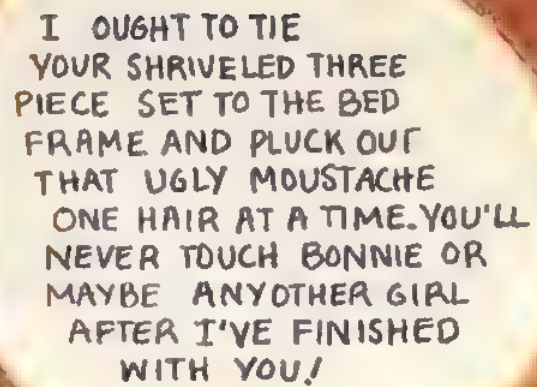 I OUGHT TO TIE
YOUR SHRIVELED THREE
PIECE SET TO THE BED
FRAME AND PLUCK OUT
THAT UGLY MOUSTACHE
ONE HAIR AT A TIME. YOU'LL
NEVER TOUCH BONNIE OR
MAYBE ANYOTHER GIRL
AFTER I'VE FINISHED
WITH YOU!